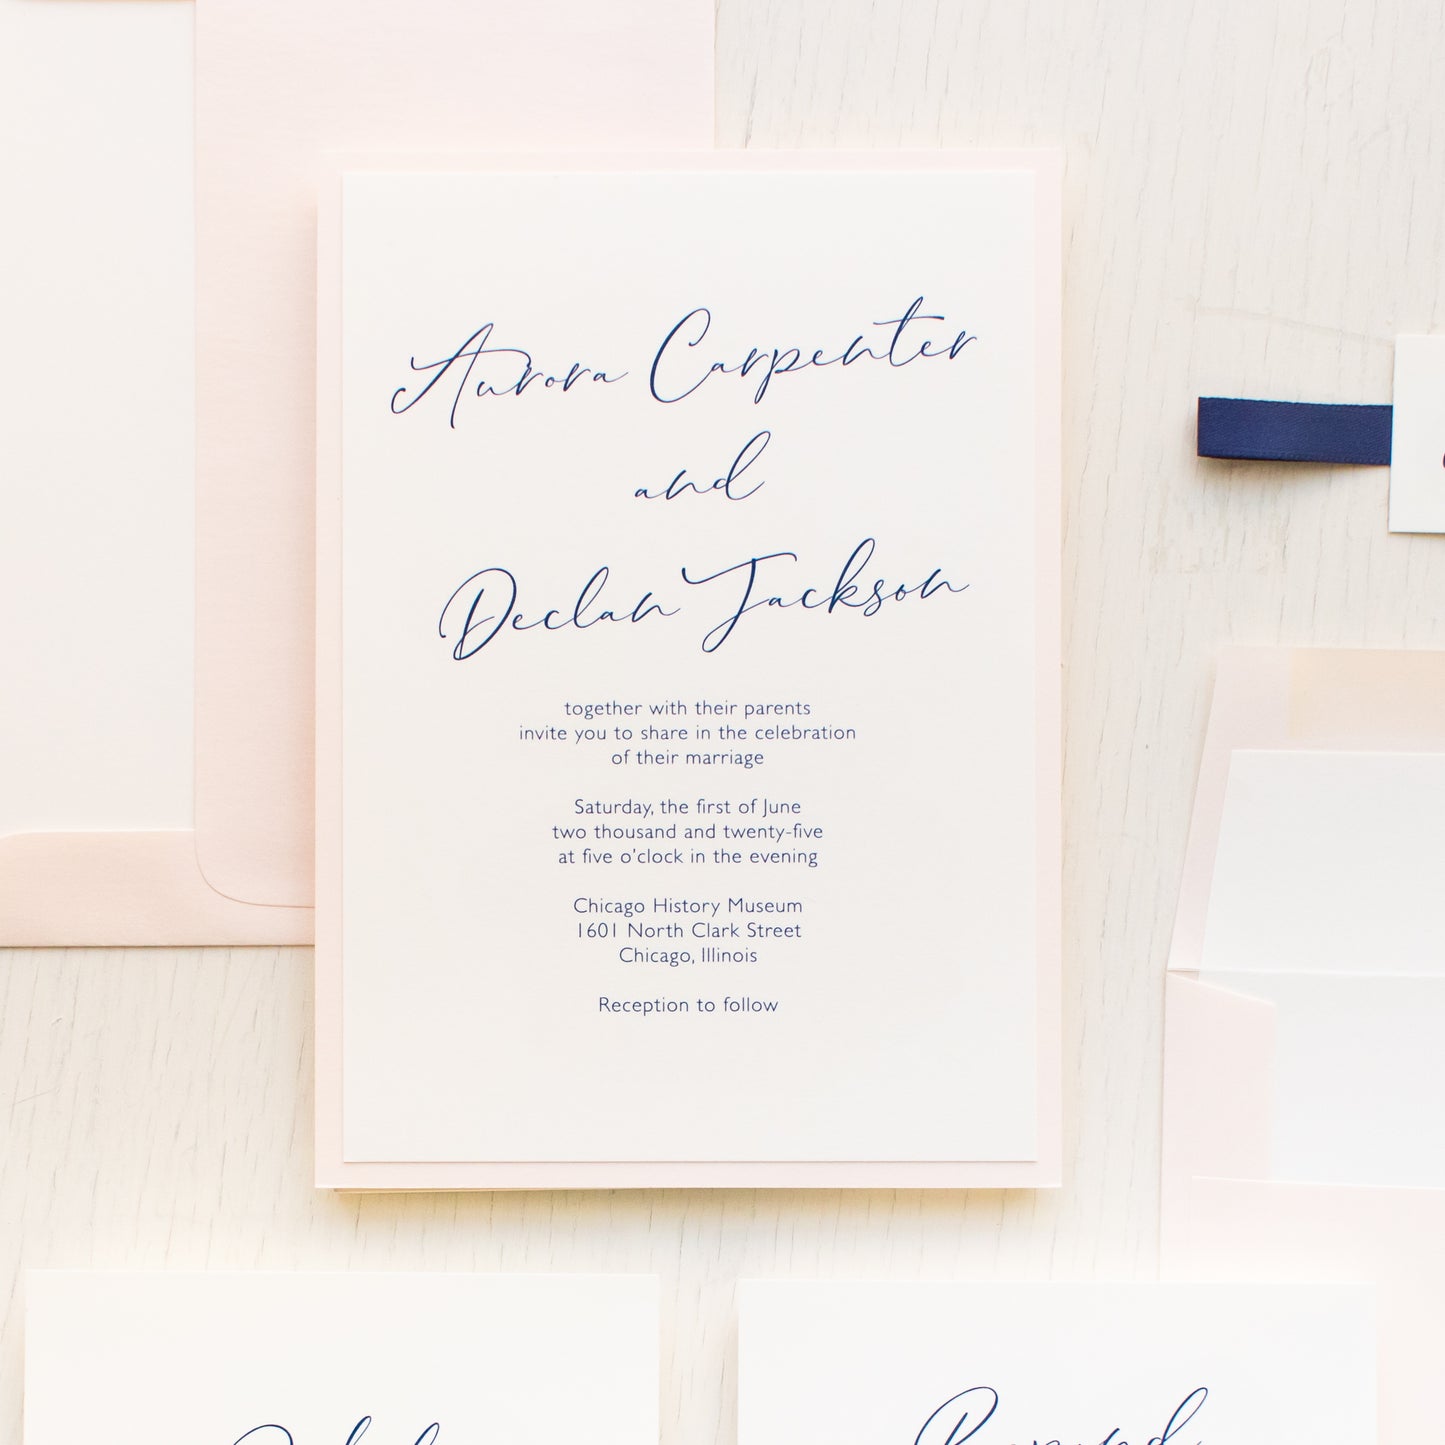 Aurora Carpenter
and
Declan Jackson
together with their parents
invite you to share in the celebration
of their marriage
Saturday, the first of June
two thousand and twenty-five
at five o'clock in the evening
Chicago History Museum
1601 North Clark Street
Chicago, Illinois
Reception to follow